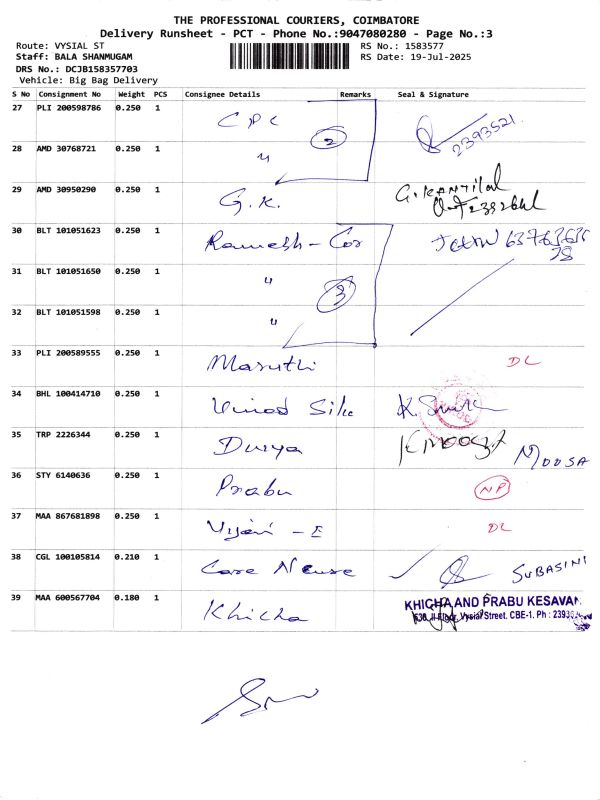 THE PROFESSIONAL COURIERS, COIMBATORE
Delivery Runsheet - PCT - Phone No.:9047080280 - Page No.:3
Route: VYSIAL ST RS No.: 1583577
Staff: BALA SHANMUGAM RS Date: 19-Jul-2025
DRS No.: DCJB158357703
Vehicle: Big Bag Delivery
S No Consignment No Weight PCS Consignee Details Remarks Seal & Signature
27 PLI 200598786 0.250 1 CPC 2 2393521
28 AMD 30768721 0.250 1 "
29 AMD 30950290 0.250 1 G.K. G.KANTILAL
30 BLT 101051623 0.250 1 Ramesh - Cor
31 BLT 101051650 0.250 1 " 3
32 BLT 101051598 0.250 1 "
33 PLI 200589555 0.250 1 Maruthi DL
34 BHL 100414710 0.250 1 Vinod Silk
35 TRP 2226344 0.250 1 Durya MOOSA
36 STY 6140636 0.250 1 Prabu NP
37 MAA 867681898 0.250 1 - E DL
38 CGL 100105814 0.210 1 Care SUBASINI
39 MAA 600567704 0.180 1 Khicha KHICHA AND PRABU KESAVAN
II Floor, Vysial Street, CBE-1. Ph :